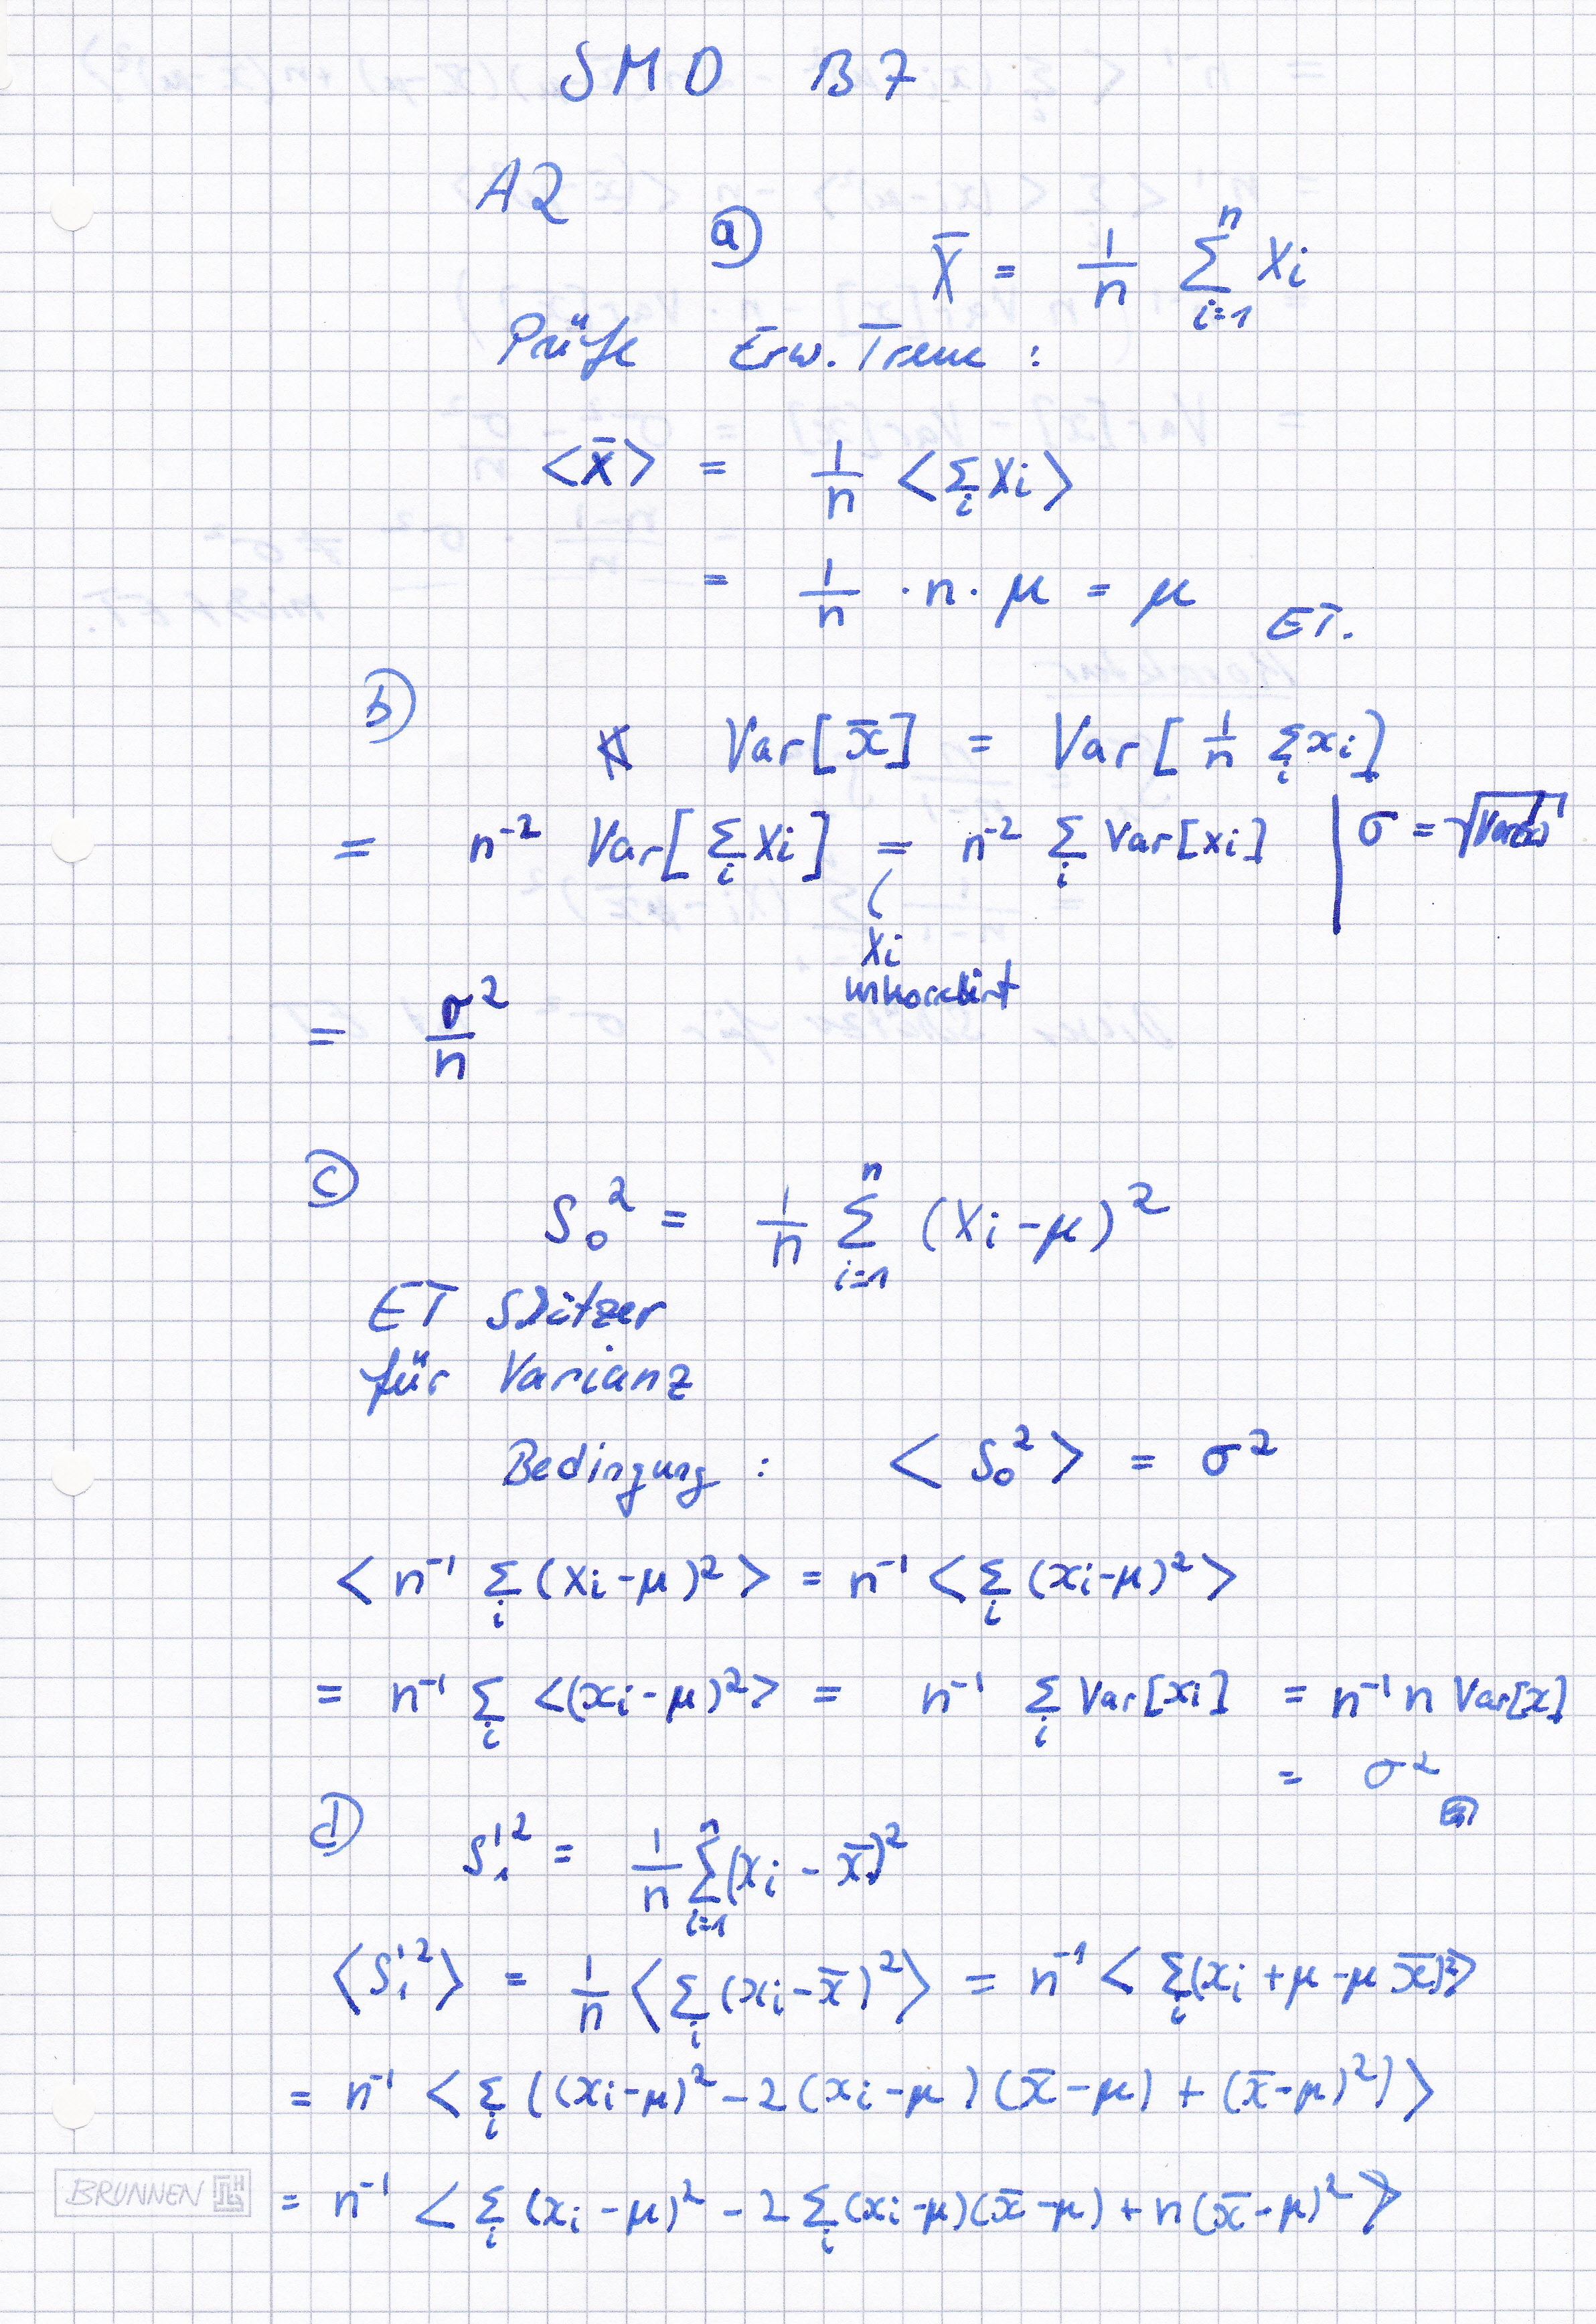 SMD B7
A2
a) X̄ = 1/n Σ_{i=1}^{n} Xi
Prüfe Erw. Treue :
<x̄> = 1/n <Σ_i Xi>
= 1/n · n · μ = μ ET.
b) Var[x̄] = Var[1/n Σ_i xi]
= n⁻² Var[Σ_i Xi] = n⁻² Σ_i Var[xi] | σ =
Xi
unkorreliert
= σ²/n
c) S₀² = 1/n Σ_{i=1}^{n} (Xi - μ)²
ET Schätzer
für Varianz
Bedingung : < S₀² > = σ²
< n⁻¹ Σ_i (Xi - μ)² > = n⁻¹ < Σ_i (xi - μ)² >
= n⁻¹ Σ_i <(xi - μ)²> = n⁻¹ Σ_i Var[xi] = n⁻¹ n Var[x]
= σ²
d) S₁'² = 1/n Σ_{i=1}^{n} (xi - x̄)²
<S₁'²> = 1/n <Σ_i (xi - x̄)²> = n⁻¹ < Σ_i (xi + μ - μ x̄)²>
= n⁻¹ < Σ_i ((xi - μ)² - 2 (xi - μ) (x̄ - μ) + (x̄ - μ)²) >
BRUNNEN
= n⁻¹ < Σ_i (xi - μ)² - 2 Σ_i (xi - μ)(x̄ - μ) + n (x̄ - μ)² >